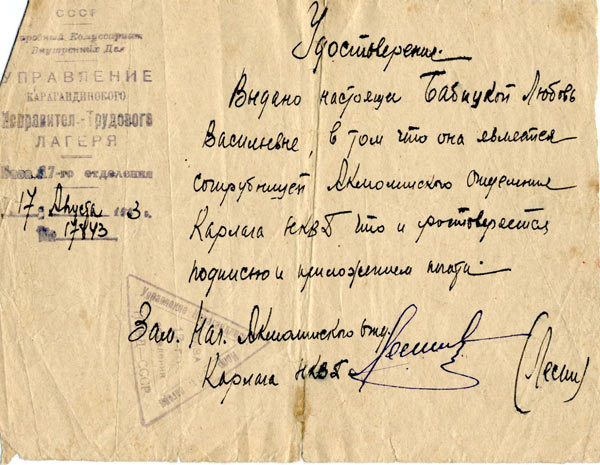 СССР
Народный Комиссариат
Внутренних Дел
УПРАВЛЕНИЕ
КАРАГАНДИНСКОГО
Исправител.-Трудового
ЛАГЕРЯ
17-го отделения
17 Августа 1943 г.
№ 17843
Удостоверение.
Выдано настоящее Бабицкой Любовь
Васильевне, в том что она является
сотрубницей Акмолинского Отделения
Карлага НКВД что и удостоверяется
подписью и приложением печати.
Зам. Нач. Акмолинского отд.
Карлага НКВД
Управление